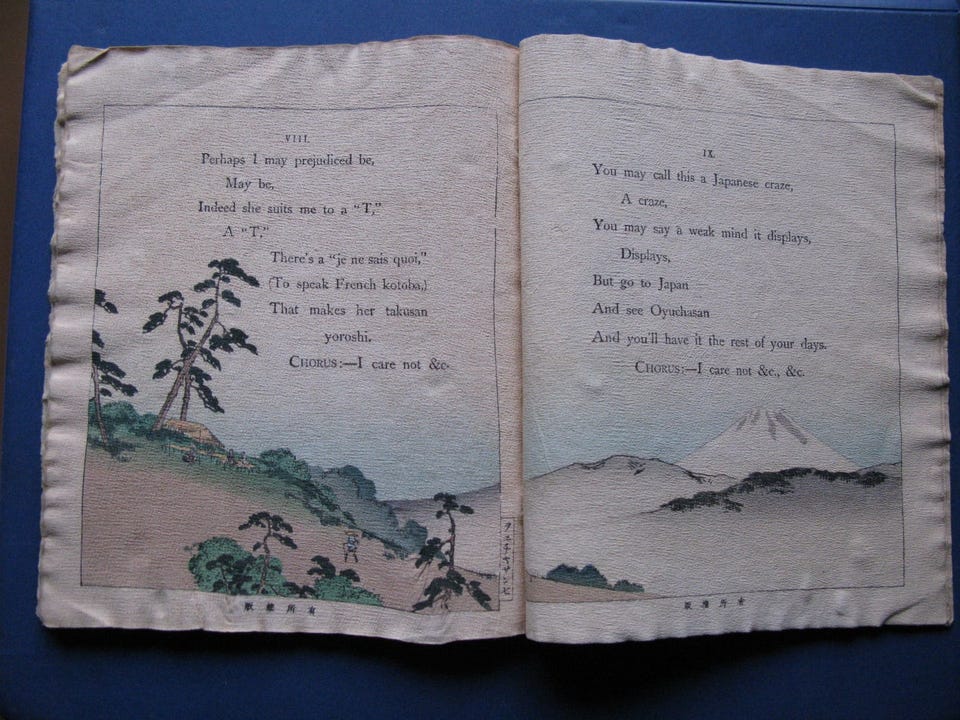 VIII.
Perhaps I may prejudiced be,
May be,
Indeed she suits me to a "T,"
A "T,"
There's a "je ne sais quoi,"
(To speak French kotoba,)
That makes her takusan
yoroshi.
CHORUS:—I care not &c.
ヲユチヤサン七
有所權版
IX.
You may call this a Japanese craze,
A craze,
You may say a weak mind it displays,
Displays,
But go to Japan
And see Oyuchasan
And you'll have it the rest of your days.
CHORUS:—I care not &c., &c.
有所權版